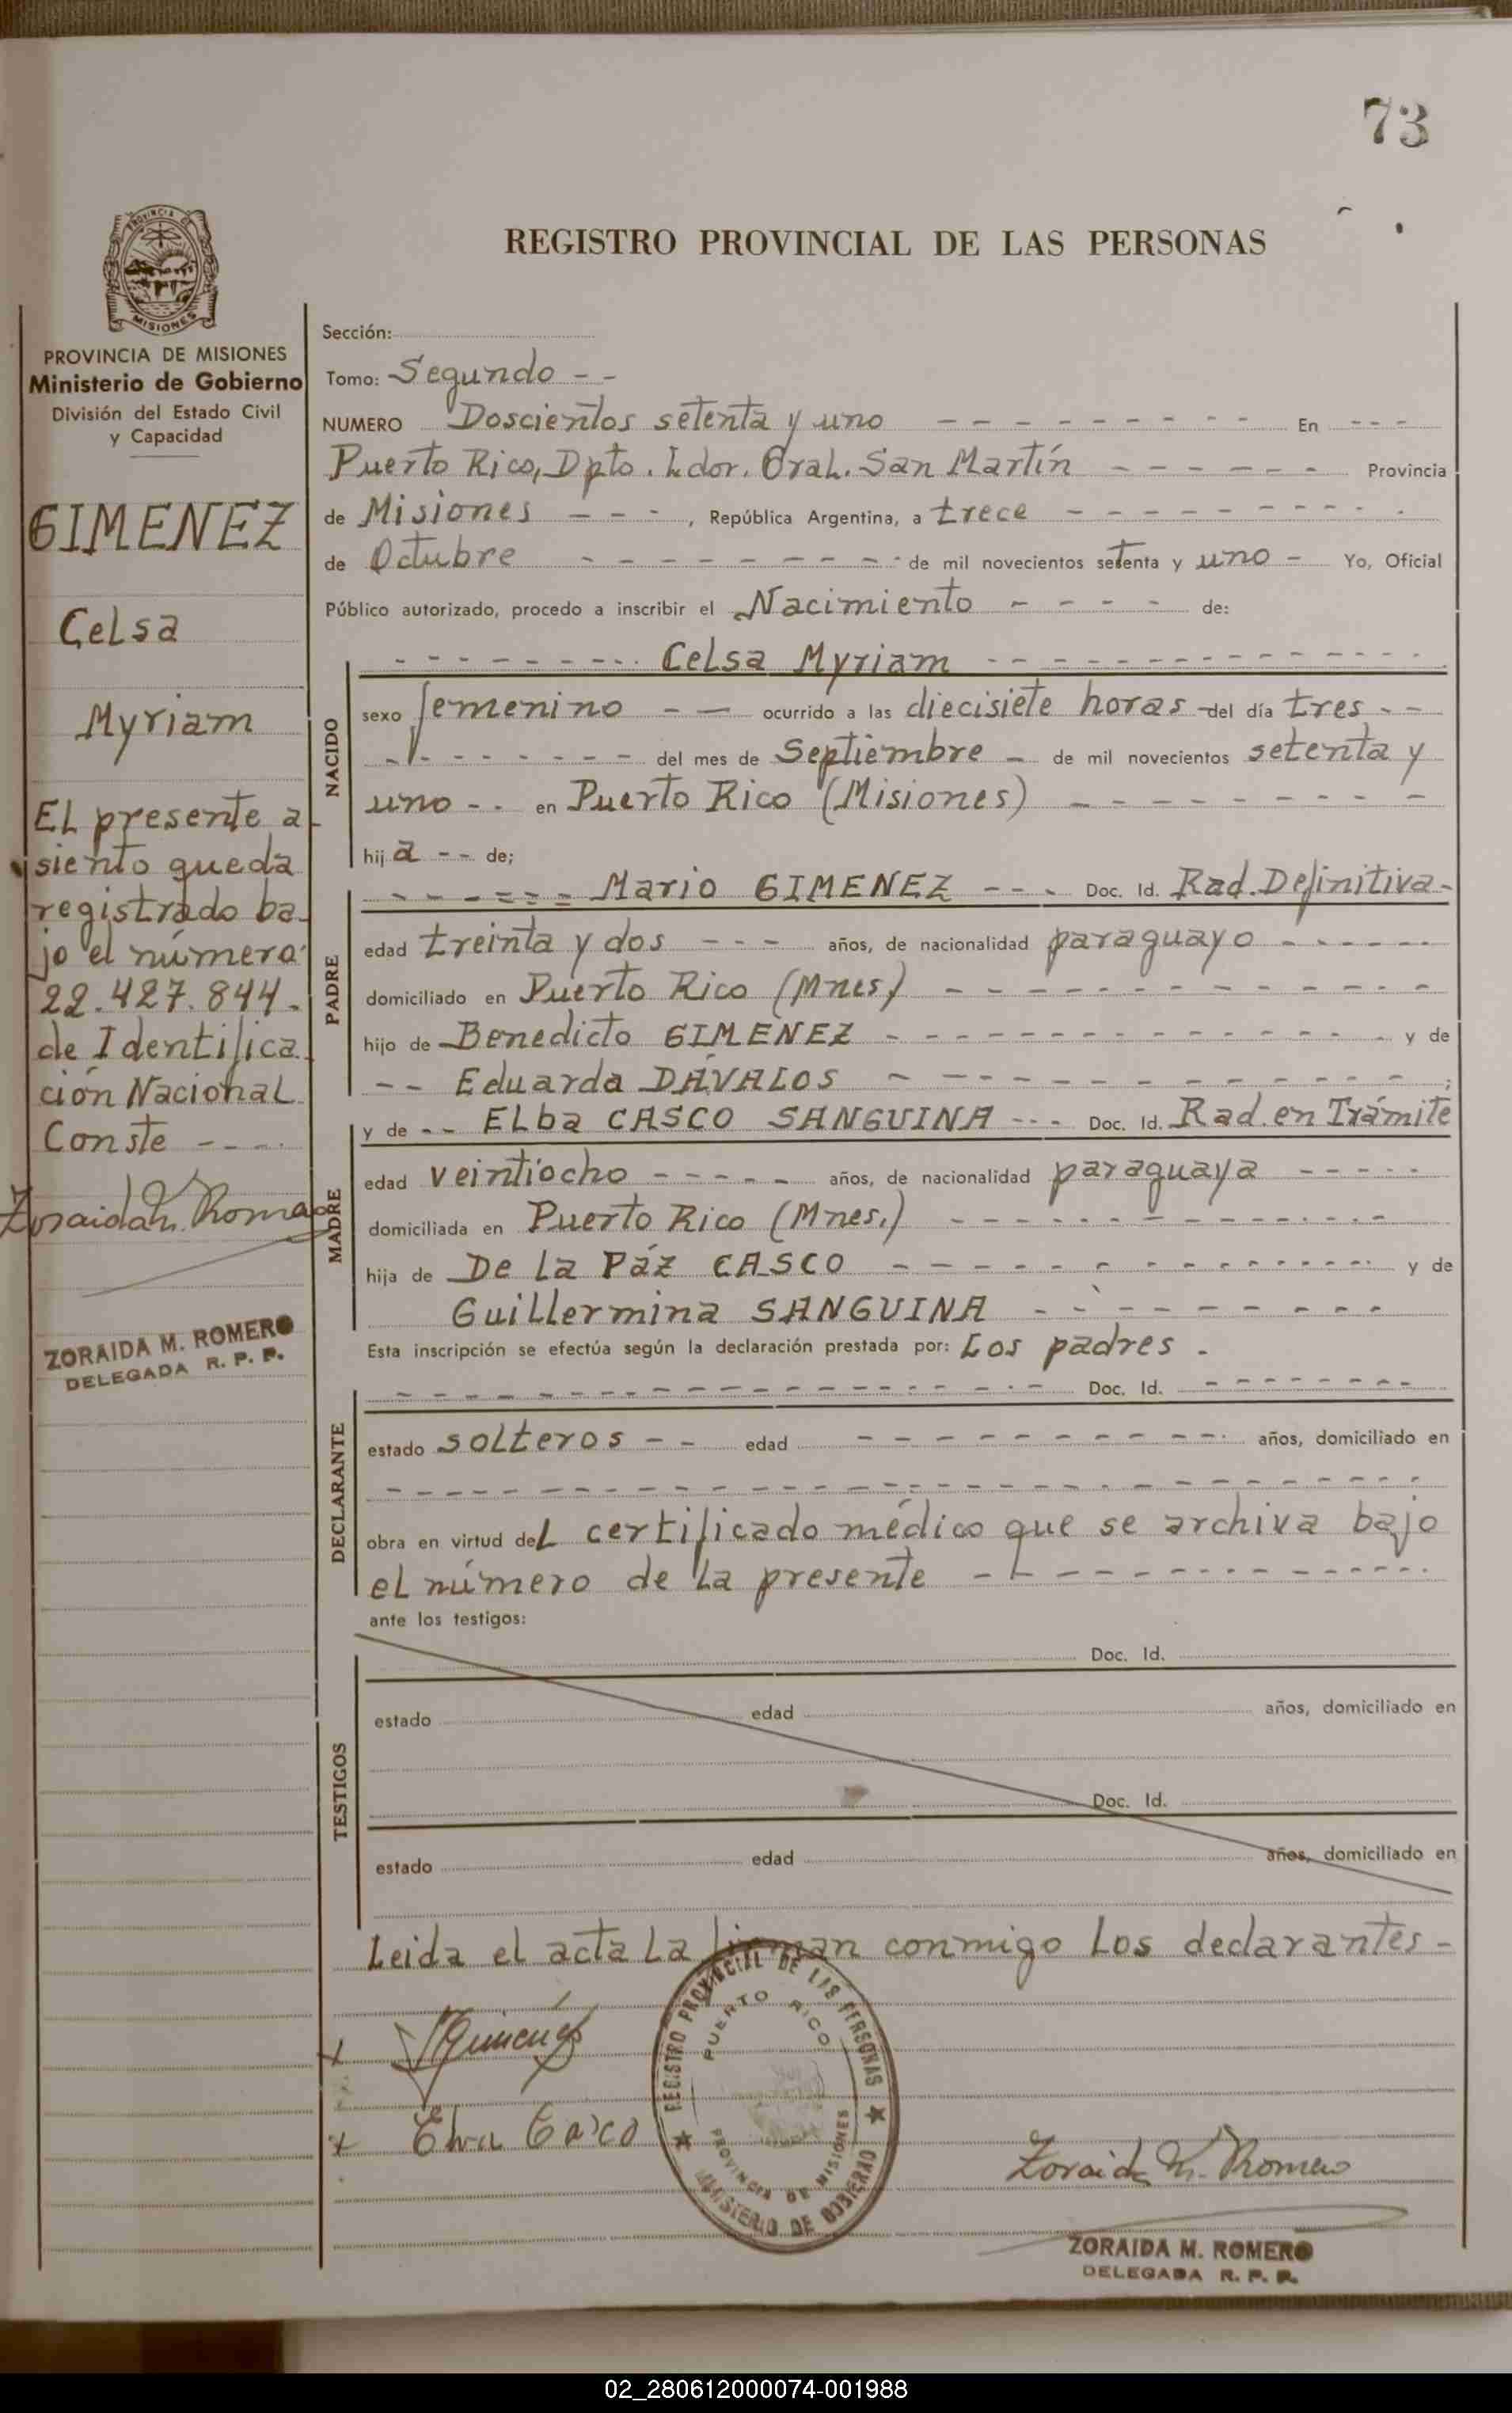 73
PROVINCIA DE
MISIONES
REGISTRO PROVINCIAL DE LAS PERSONAS
PROVINCIA DE MISIONES
Ministerio de Gobierno
División del Estado Civil
y Capacidad
GIMENEZ
Celsa
Myriam
El presente a
siento queda
registrado ba-
jo el número
22.427.844.
de Identifica
ción Nacional
Conste ----
Zoraida M. Romero
ZORAIDA M. ROMERO
DELEGADA R. P. P.
Sección:
Tomo: Segundo --
NUMERO Doscientos setenta y uno --------- En ---
Puerto Rico, Dpto. Ldor. Gral. San Martín ------ Provincia
de Misiones ---, República Argentina, a trece ----------
de Octubre -------- de mil novecientos setenta y uno - Yo, Oficial
Público autorizado, procedo a inscribir el Nacimiento ---- de:
NACIDO
-------- Celsa Myriam --------------
sexo femenino -- ocurrido a las diecisiete horas - del día tres --
-------- del mes de Septiembre - de mil novecientos setenta y
uno -- en Puerto Rico (Misiones) ---------
hija -- de;
PADRE
------- Mario GIMENEZ --- Doc. Id. Rad. Definitiva-
edad treinta y dos --- años, de nacionalidad paraguayo ------
domiciliado en Puerto Rico (Mnes) ------------
hijo de Benedicto GIMENEZ -------------- y de
-- Eduarda DÁVALOS ------------- ;
MADRE
y de -- Elba CASCO SANGUINA --- Doc. Id. Rad. en Trámite
edad veintiocho ----- años, de nacionalidad paraguaya -----
domiciliada en Puerto Rico (Mnes.) ------------
hija de De la Páz CASCO ------------- y de
Guillermina SANGUINA ---------
Esta inscripción se efectúa según la declaración prestada por: Los padres .
DECLARANTE
------------------- Doc. Id. -------
estado solteros -- edad ----------- años, domiciliado en
------------------------------
obra en virtud del certificado médico que se archiva bajo
el número de la presente --------------
ante los testigos:
TESTIGOS
Doc. Id.
estado edad años, domiciliado en
Doc. Id.
estado edad años, domiciliado en
Leida el acta la firman conmigo los declarantes -
REGISTRO PROVINCIAL DE LAS PERSONAS
PUERTO RICO
PROVINCIA DE MISIONES
MINISTERIO DE GOBIERNO
x Gimenez
x Elva Casco
Zoraida M. Romero
ZORAIDA M. ROMERO
DELEGADA R. P. P.
02_280612000074-001988